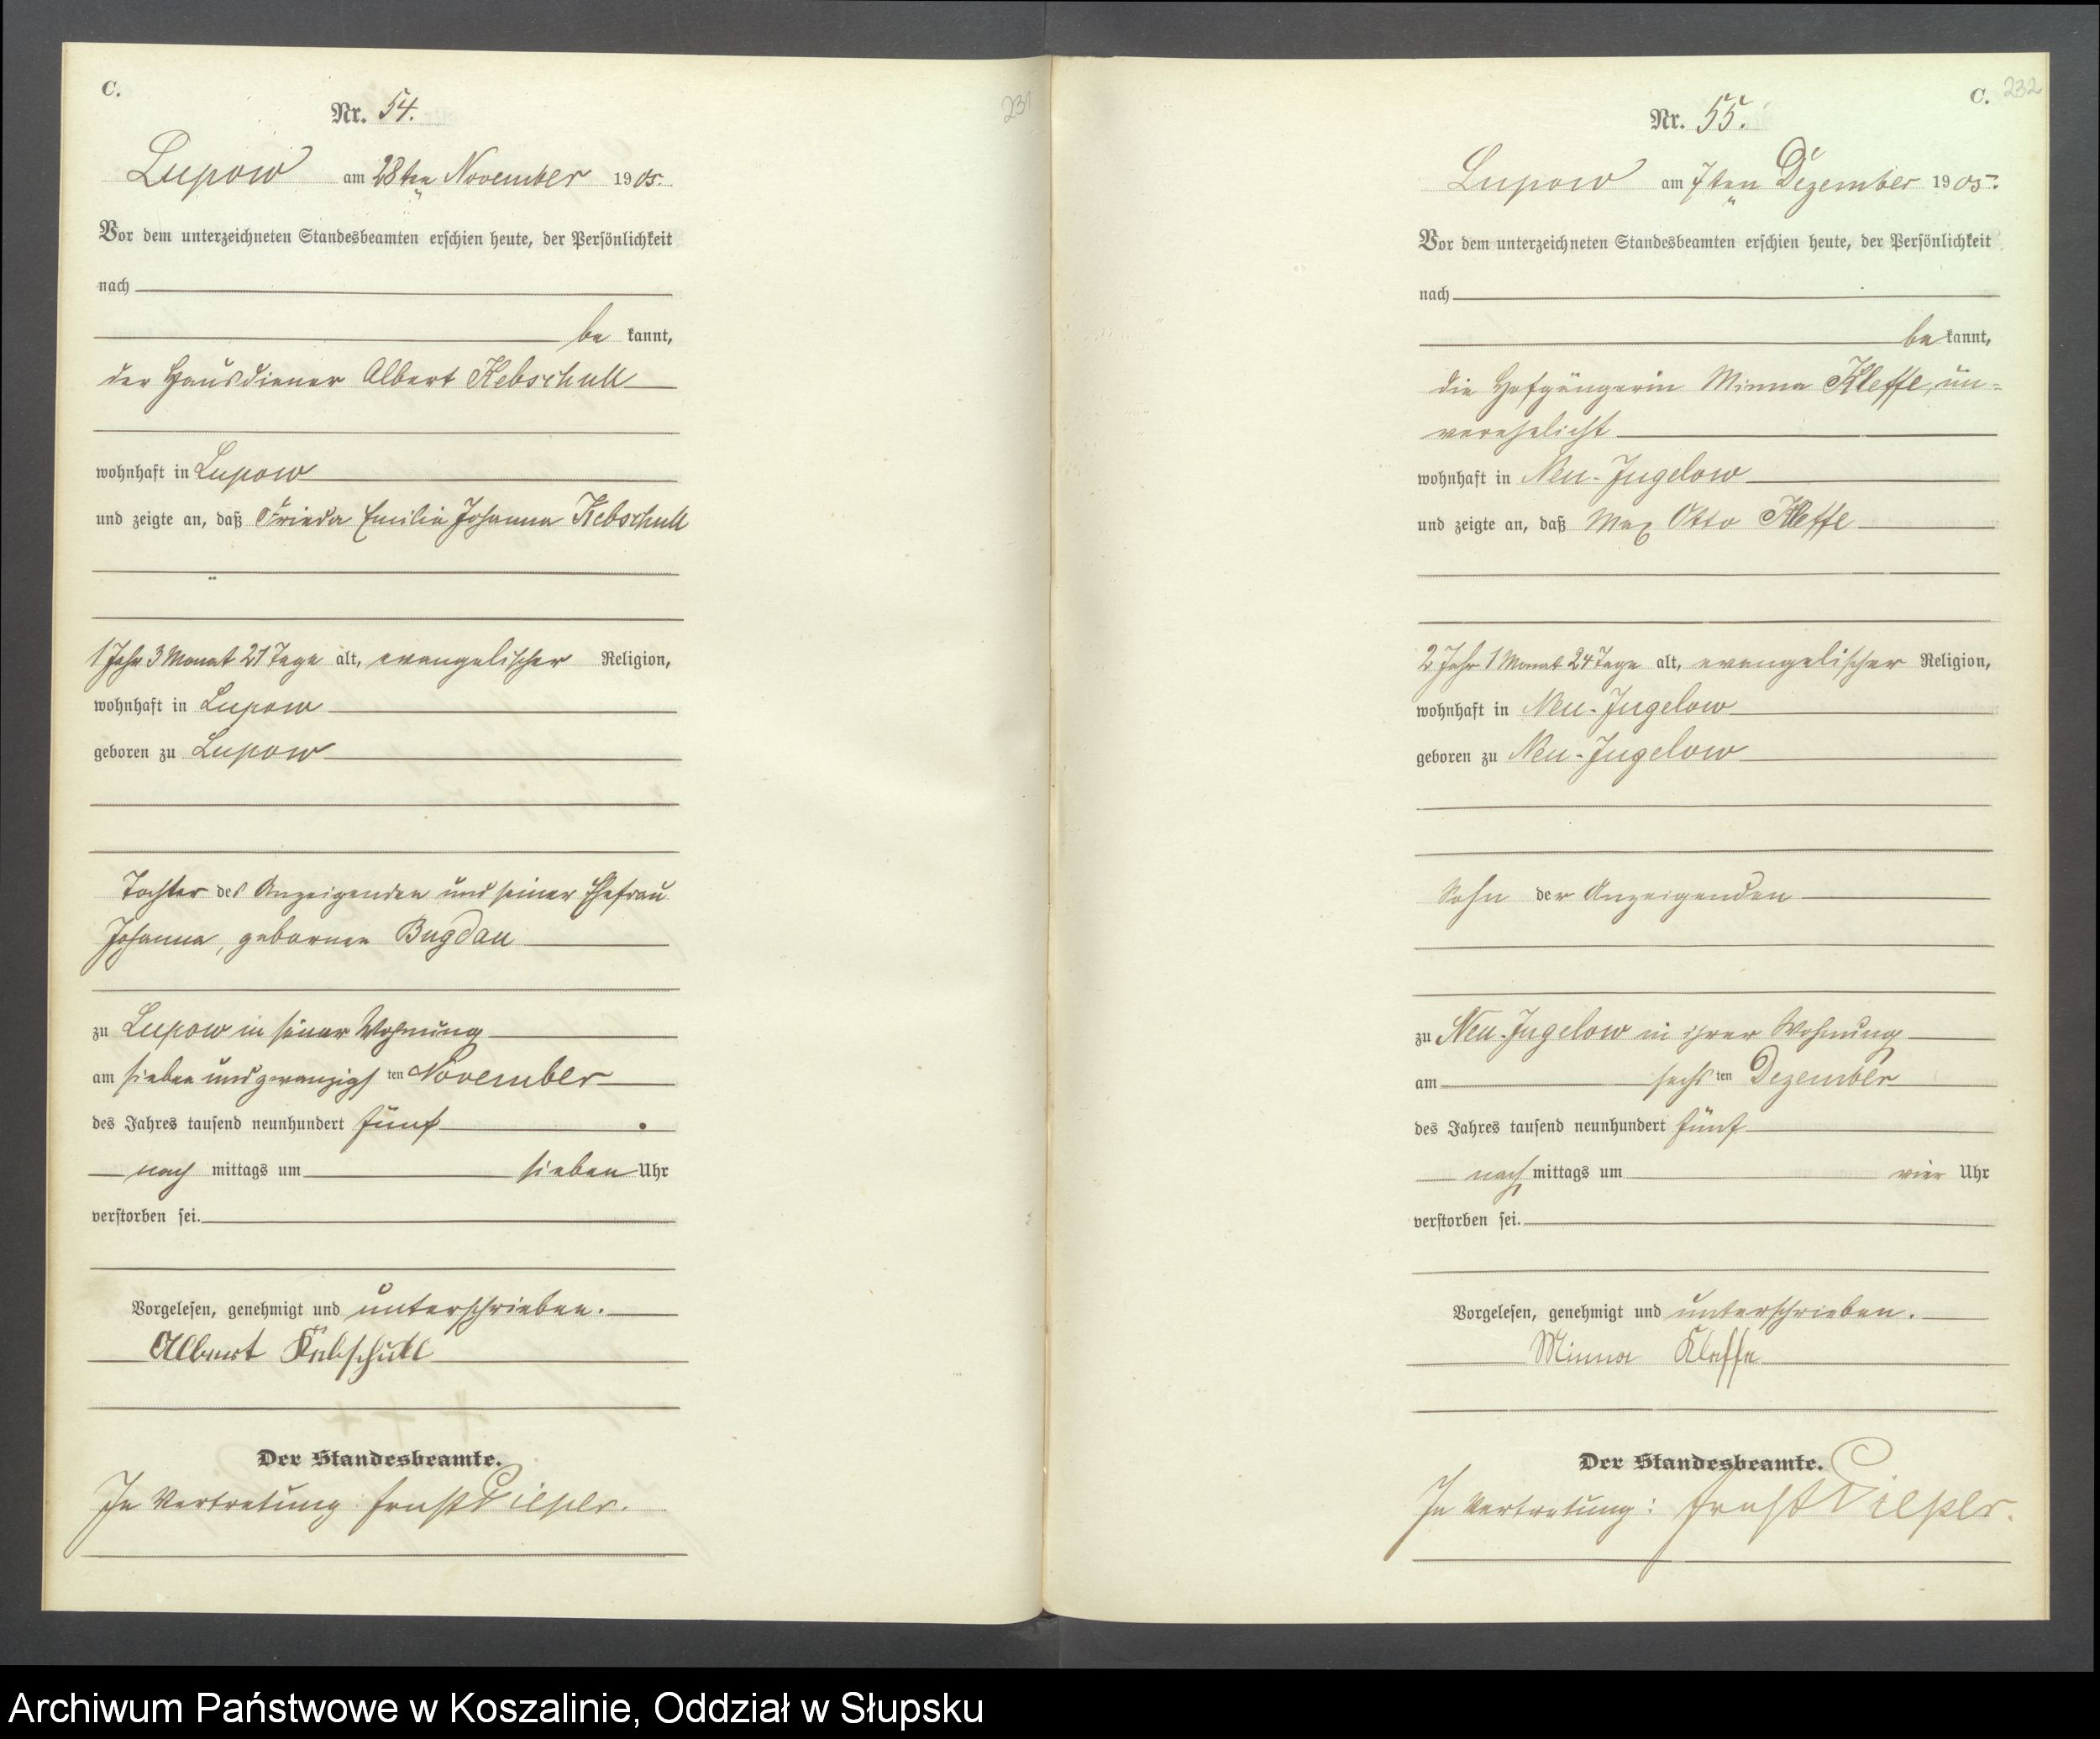 C.
231
Nr. 54.
Lupow am 28ten November 1905.
Vor dem unterzeichneten Standesbeamten erschien heute, der Persönlichkeit
nach
be kannt,
der Hausdiener Albert Kebschull
wohnhaft in Lupow
und zeigte an, daß Frieda Emilie Johanna Kebschull
1 Jahr 3 Monat 21 Tage alt, evangelischer Religion,
wohnhaft in Lupow
geboren zu Lupow
Tochter des Anzeigenden und seiner Ehefrau
Johanna, geborenen Bugdau
zu Lupow in seiner Wohnung
am sieben und zwanzigsten November
des Jahres tausend neunhundert fünf
nach mittags um sieben Uhr
verstorben sei.
Vorgelesen, genehmigt und unterschrieben.
Albert Kebschull
Der Standesbeamte.
In Vertretung: Ernst Pieper.
C. 232
Nr. 55.
Lupow am 7ten Dezember 1905.
Vor dem unterzeichneten Standesbeamten erschien heute, der Persönlichkeit
nach
be kannt,
die Hofgängerin Minna Kleffe, un-
verehelicht
wohnhaft in Neu-Jugelow
und zeigte an, daß Max Otto Kleffe
2 Jahr 1 Monat 24 Tage alt, evangelischer Religion,
wohnhaft in Neu-Jugelow
geboren zu Neu-Jugelow
Sohn der Anzeigenden
zu Neu-Jugelow in ihrer Wohnung
am sechsten Dezember
des Jahres tausend neunhundert fünf
nach mittags um vier Uhr
verstorben sei.
Vorgelesen, genehmigt und unterschrieben.
Minna Kleffe
Der Standesbeamte.
In Vertretung: Ernst Pieper.
Archiwum Państwowe w Koszalinie, Oddział w Słupsku